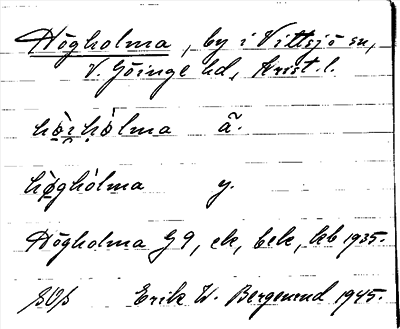 Högholma, by i Vittsjö sn,
V. Göinge hd, Krist. l.
hö̀i̯hòlma ä.
hö̀ghòlma y.
Högholma G 9, ek, bek, kb 1935.
SOS Erik W. Bergerund 1945.